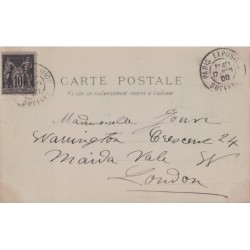 CARTE POSTALE
Ce côté est exclusivement réservé à l'adresse
PARIS EXPOSITION
00
10
Mademoiselle Jouve
Warrington Crescent 24
Maida Vale W
London